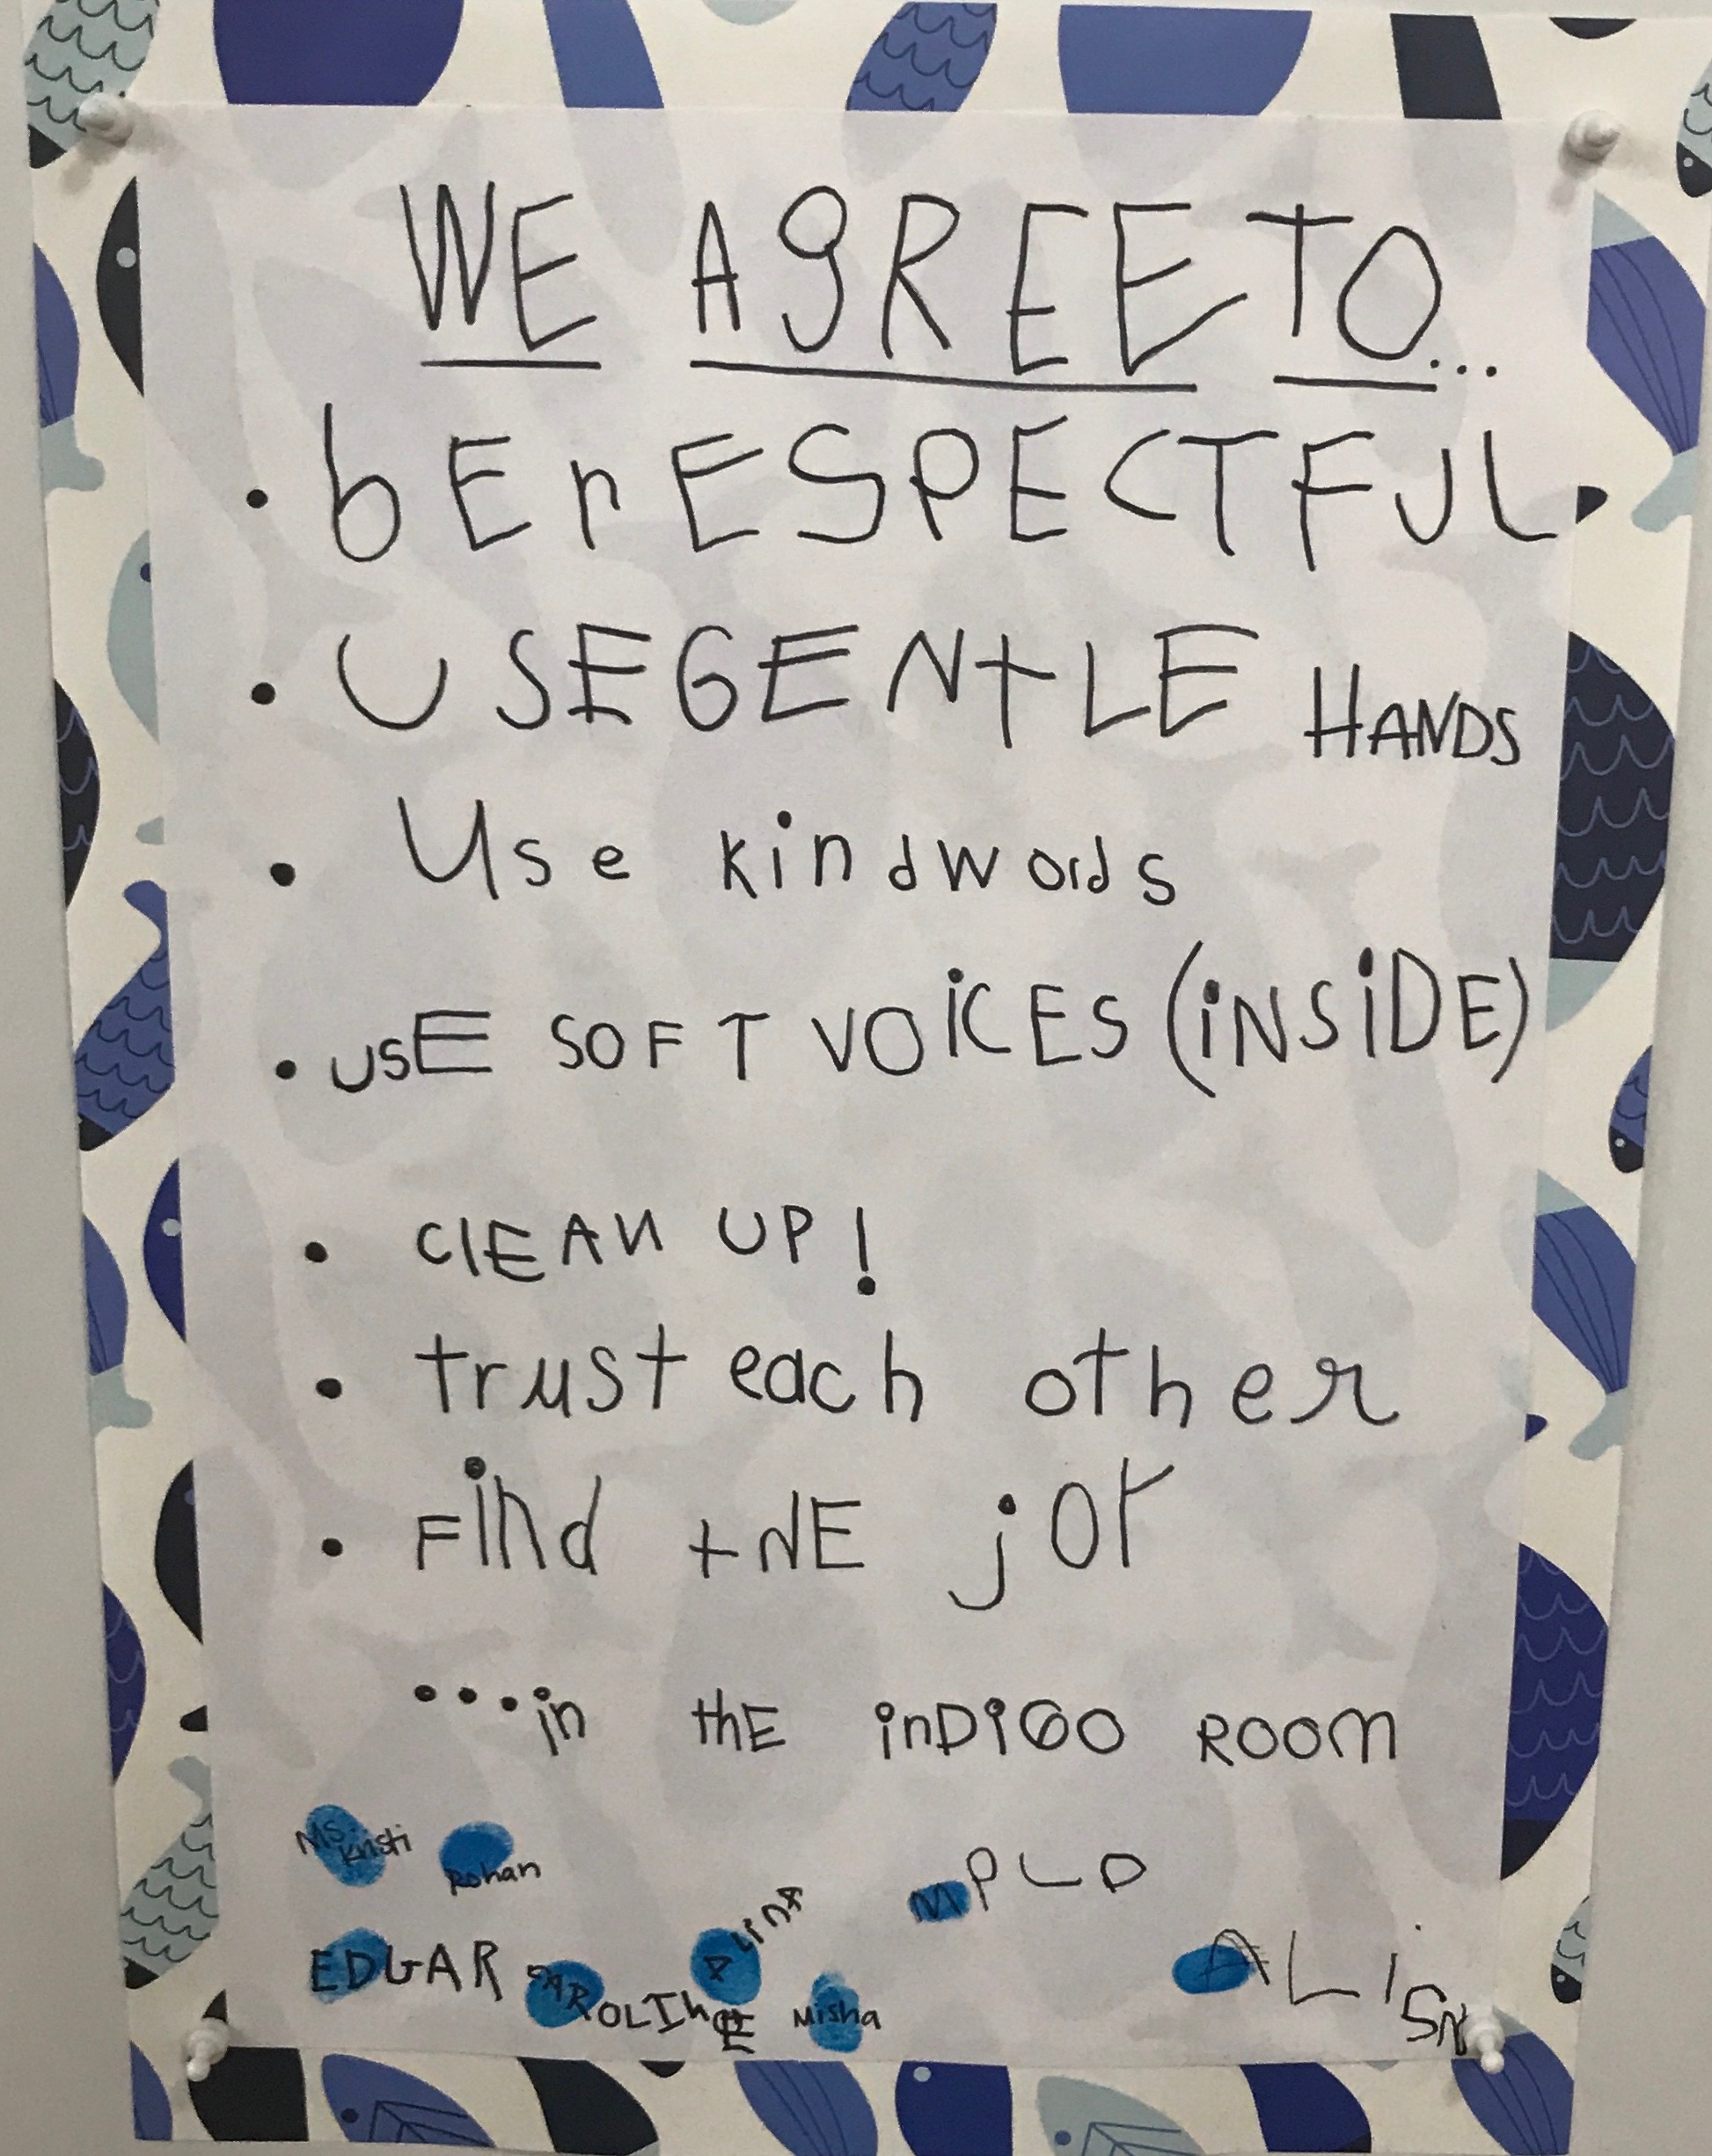 WE AgREE TO...
• bE rESPECTFUL
• USE GENtLE HANDS
• Use kind words
• USE SOFT VOiCES (iNSiDE)
• ClEAN UP!
• trust each other
• Find thE joY
...in thE inDiGO ROOm
Ms. Kristi Rohan MPLD
EDGAR CAROLINE ALINA Misha ALiSN